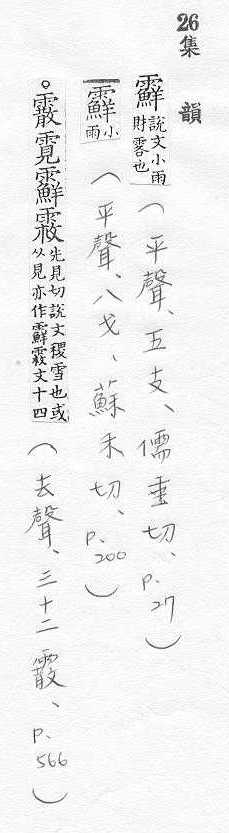 26集
韻
䨘說文小雨財䨘也（平聲、五支、儒垂切、p.27）
䨘小雨（平聲、八戈、蘇禾切、p.200）
。霰霓䨘霚先見切說文稷雪也或从見亦作䨘霚文十四（去聲、三十二霰、p.566）